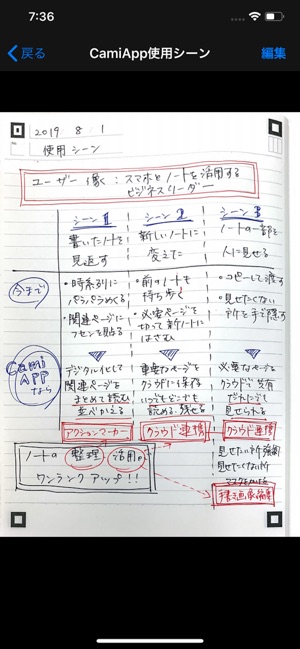 7:36
戻る
CamiApp使用シーン
編集
2019 8 1
使用シーン
ユーザー像:スマホとノートを活用する
ビジネスリーダー
シーン1
書いたノートを
見返す
シーン2
新しいノートに
変えた
シーン3
ノートの一部を
人に見せる
今まで
・時系列に
パラパラめくる
・関連ページに
フセンを貼る
・前のノートを
持ち歩く
・必要ページを
切って新ノートに
はさむ
・コピーして渡す
・見せたくない
所を手で隠す
Cami
APP
なら
デジタル化して
関連ページを
まとめて読む
並べかえる
アクションマーカー
重要なページを
クラウドに保存
いつでもどこでも
読める、残せる
クラウド連携
必要なページを
クラウド共有
だれにでも
見せられる
クラウド連携
見せたい所強調
見せたくない所
ノートの 整理 活用が
ワンランクアップ!!